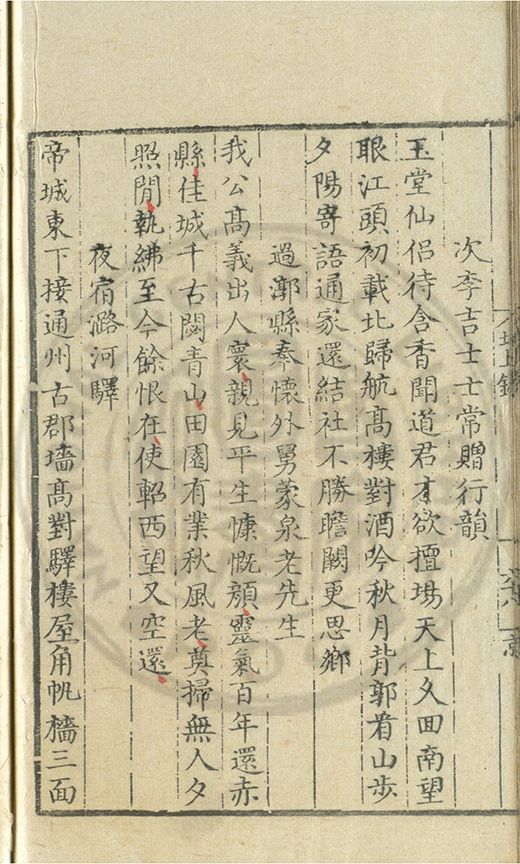 次李吉士士常贈行韻
玉堂仙侣待含香聞道君才欲擅塲天上久回南望
眼江頭初載北歸航髙樓對酒吟秋月背郭看山步
夕陽寄語通家還結社不勝瞻闕更思鄉
過漷縣奉懷外舅蒙泉老先生
我公髙義出人寰親見平生慷慨顔靈氣百年還赤
縣佳城千古閟青山田園有業秋風老奠掃無人夕
照閒執紼至今餘恨在使軺西望又空還
夜宿潞河驛
帝城東下接通州古郡墻髙對驛樓屋角帆檣三面